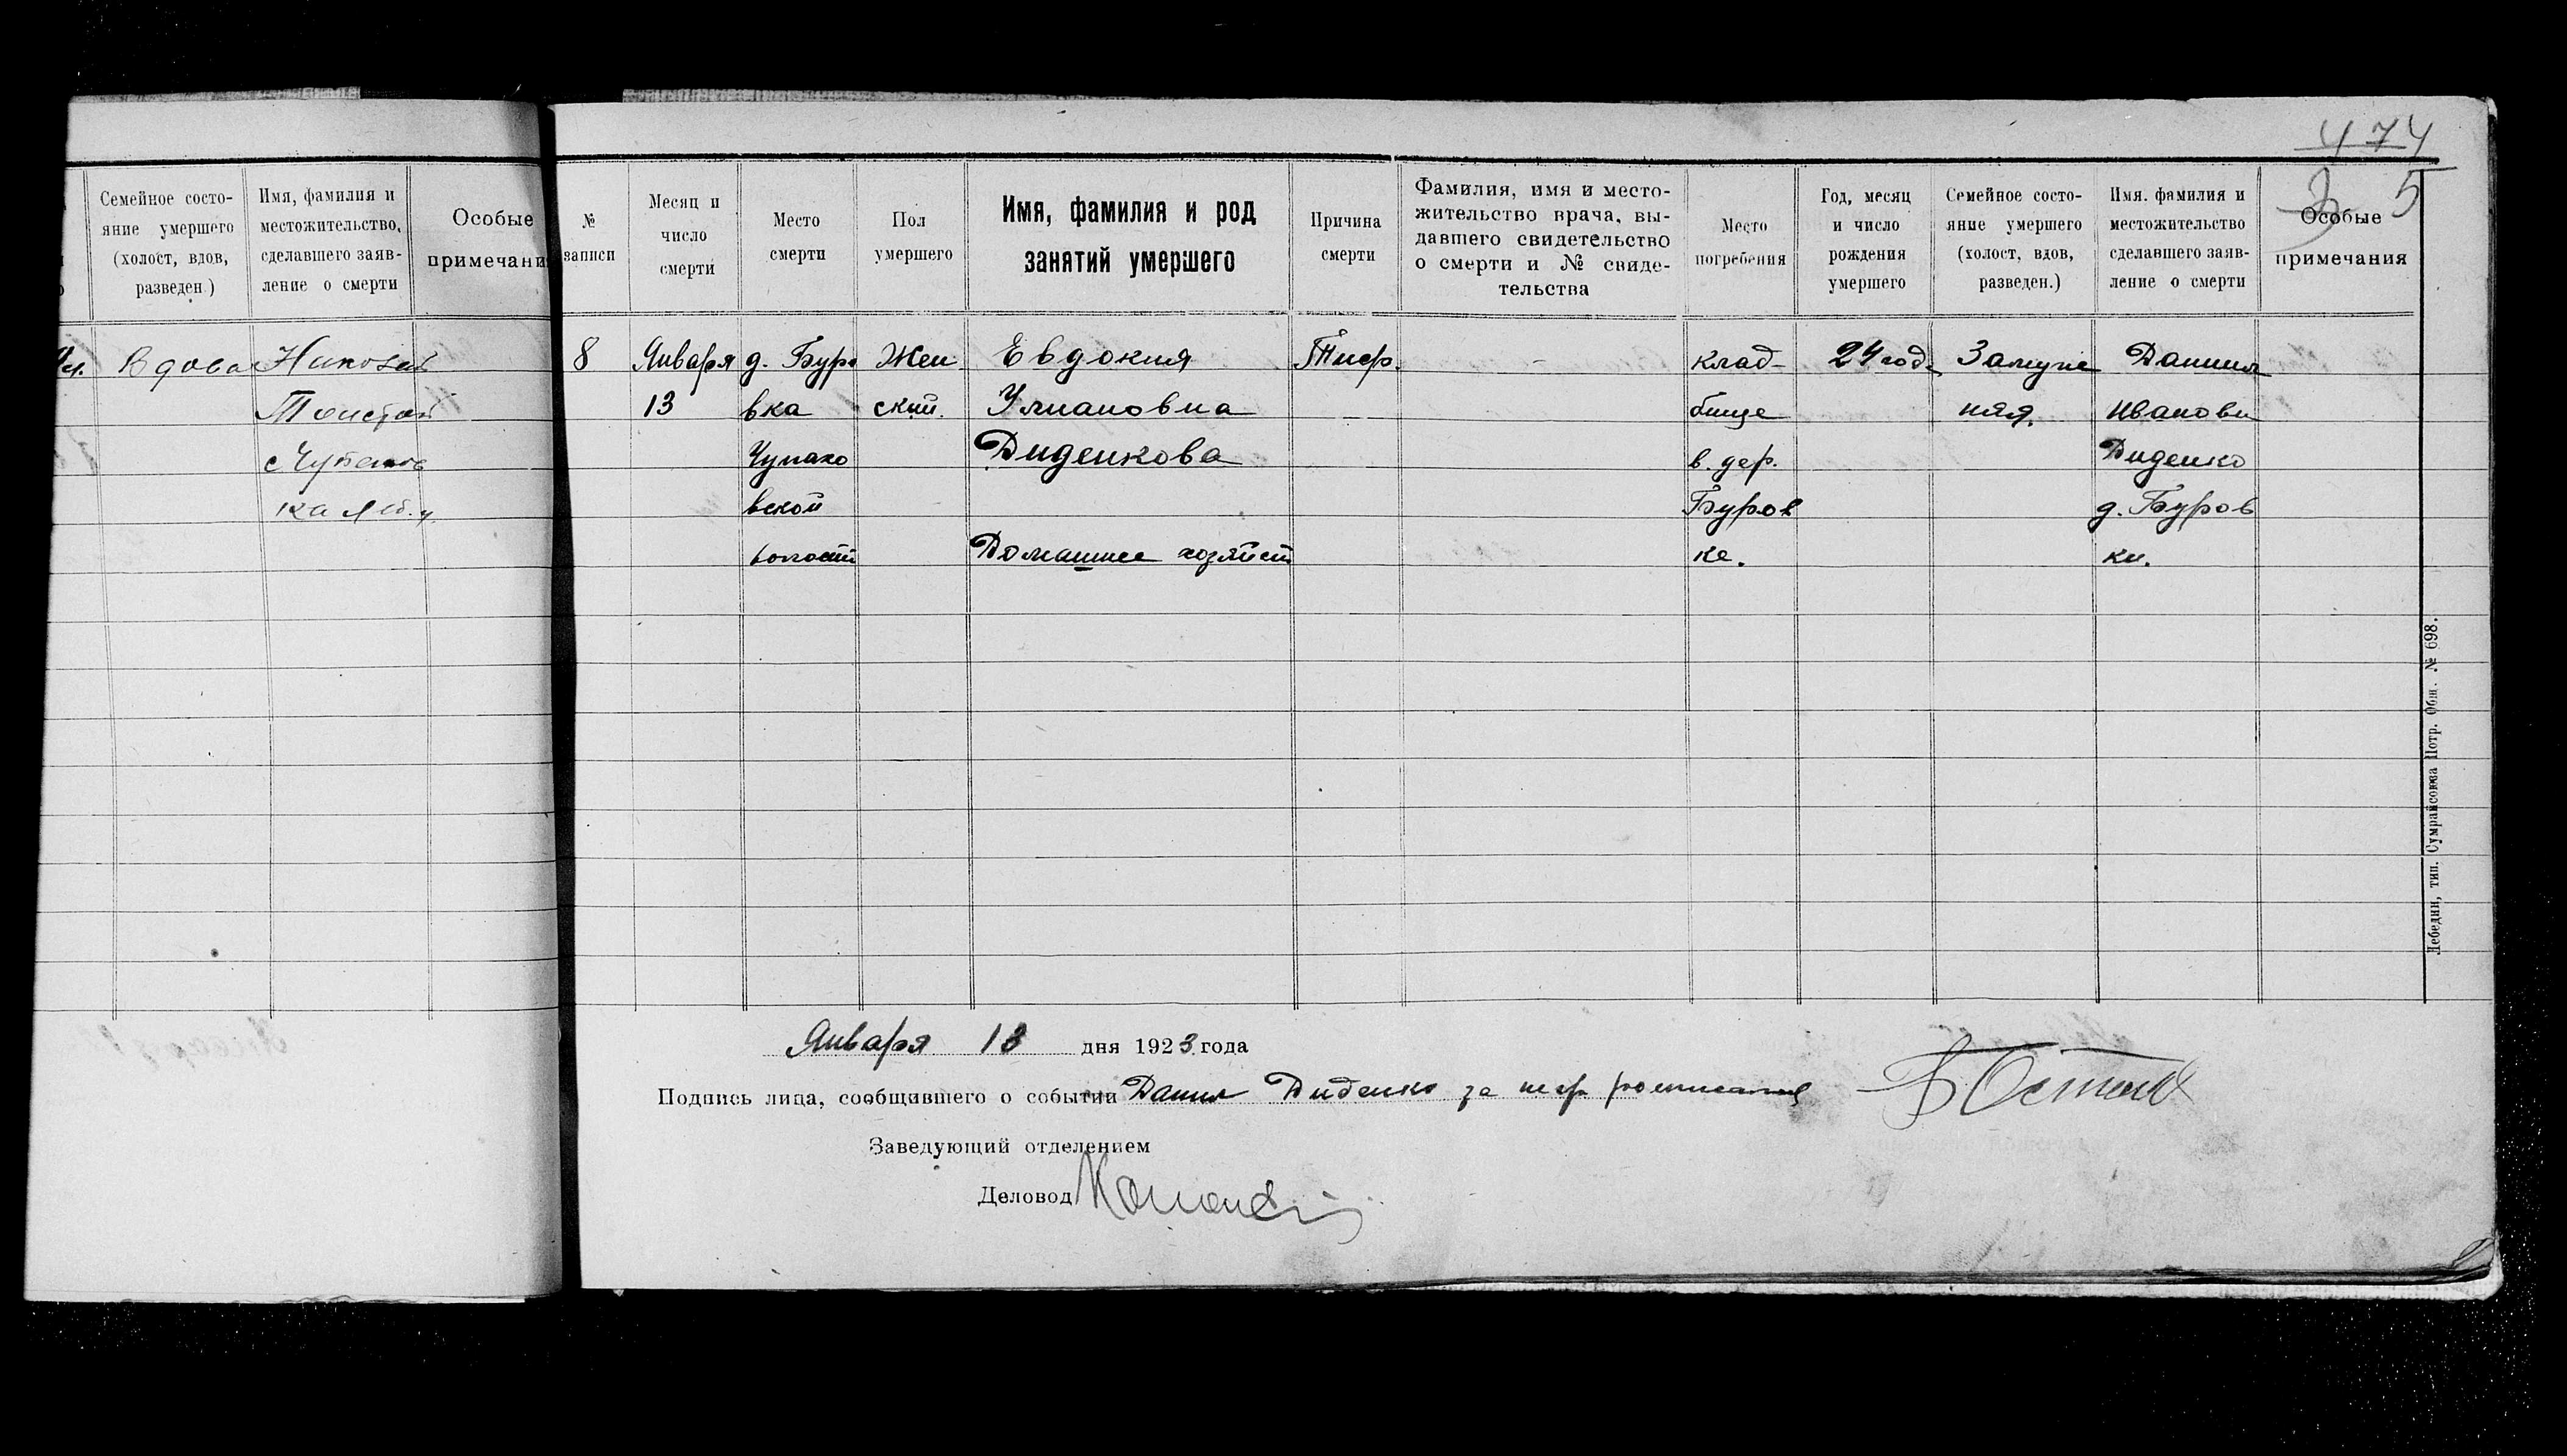 474
3 5
Семейное состо-
яние умершего
(холост, вдов,
разведен.)
Имя, фамилия и
местожительство,
сделавшего заяв-
ление о смерти
Особые
примечани
Вдова
Николай
Толстой
ка
№
записи
Месяц и
число
смерти
Место
смерти
Пол
умершего
Имя, фамилия и род
занятий умершего
Причина
смерти
Фамилия, имя и место-
жительство врача, вы-
давшего свидетельство
о смерти и № свиде-
тельства
Место
погребения
Год, месяц
и число
рождения
умершего
Семейное состо-
яние умершего
(холост, вдов,
разведен.)
Имя. фамилия и
местожительство
сделавшего заяв-
ление о смерти
Особые
примечания
8
Января
13
д. Буро
вка
Чупахо
вской
волости
Жен
ский.
Евдокия
Улиановна
Диденкова
Домашнее хозяйст
Тиф.
-
клад-
бище
в. дер.
Буров
ке.
24 год.
Замуж
няя.
Даниил
Иванови
Диденко
д. Буров
ки.
Января 13 дня 1923 года
Подпись лица, сообщившего о событии Данил Диденко за
Заведующий отделением
Деловод
Лебедин, тип. Сумрайсоюза Потр. Общ. № 698.